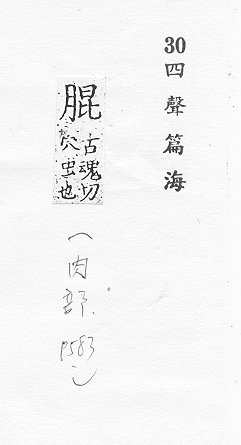 30四聲篇海
䐊古魂切
穴虫也
(肉部、p583)